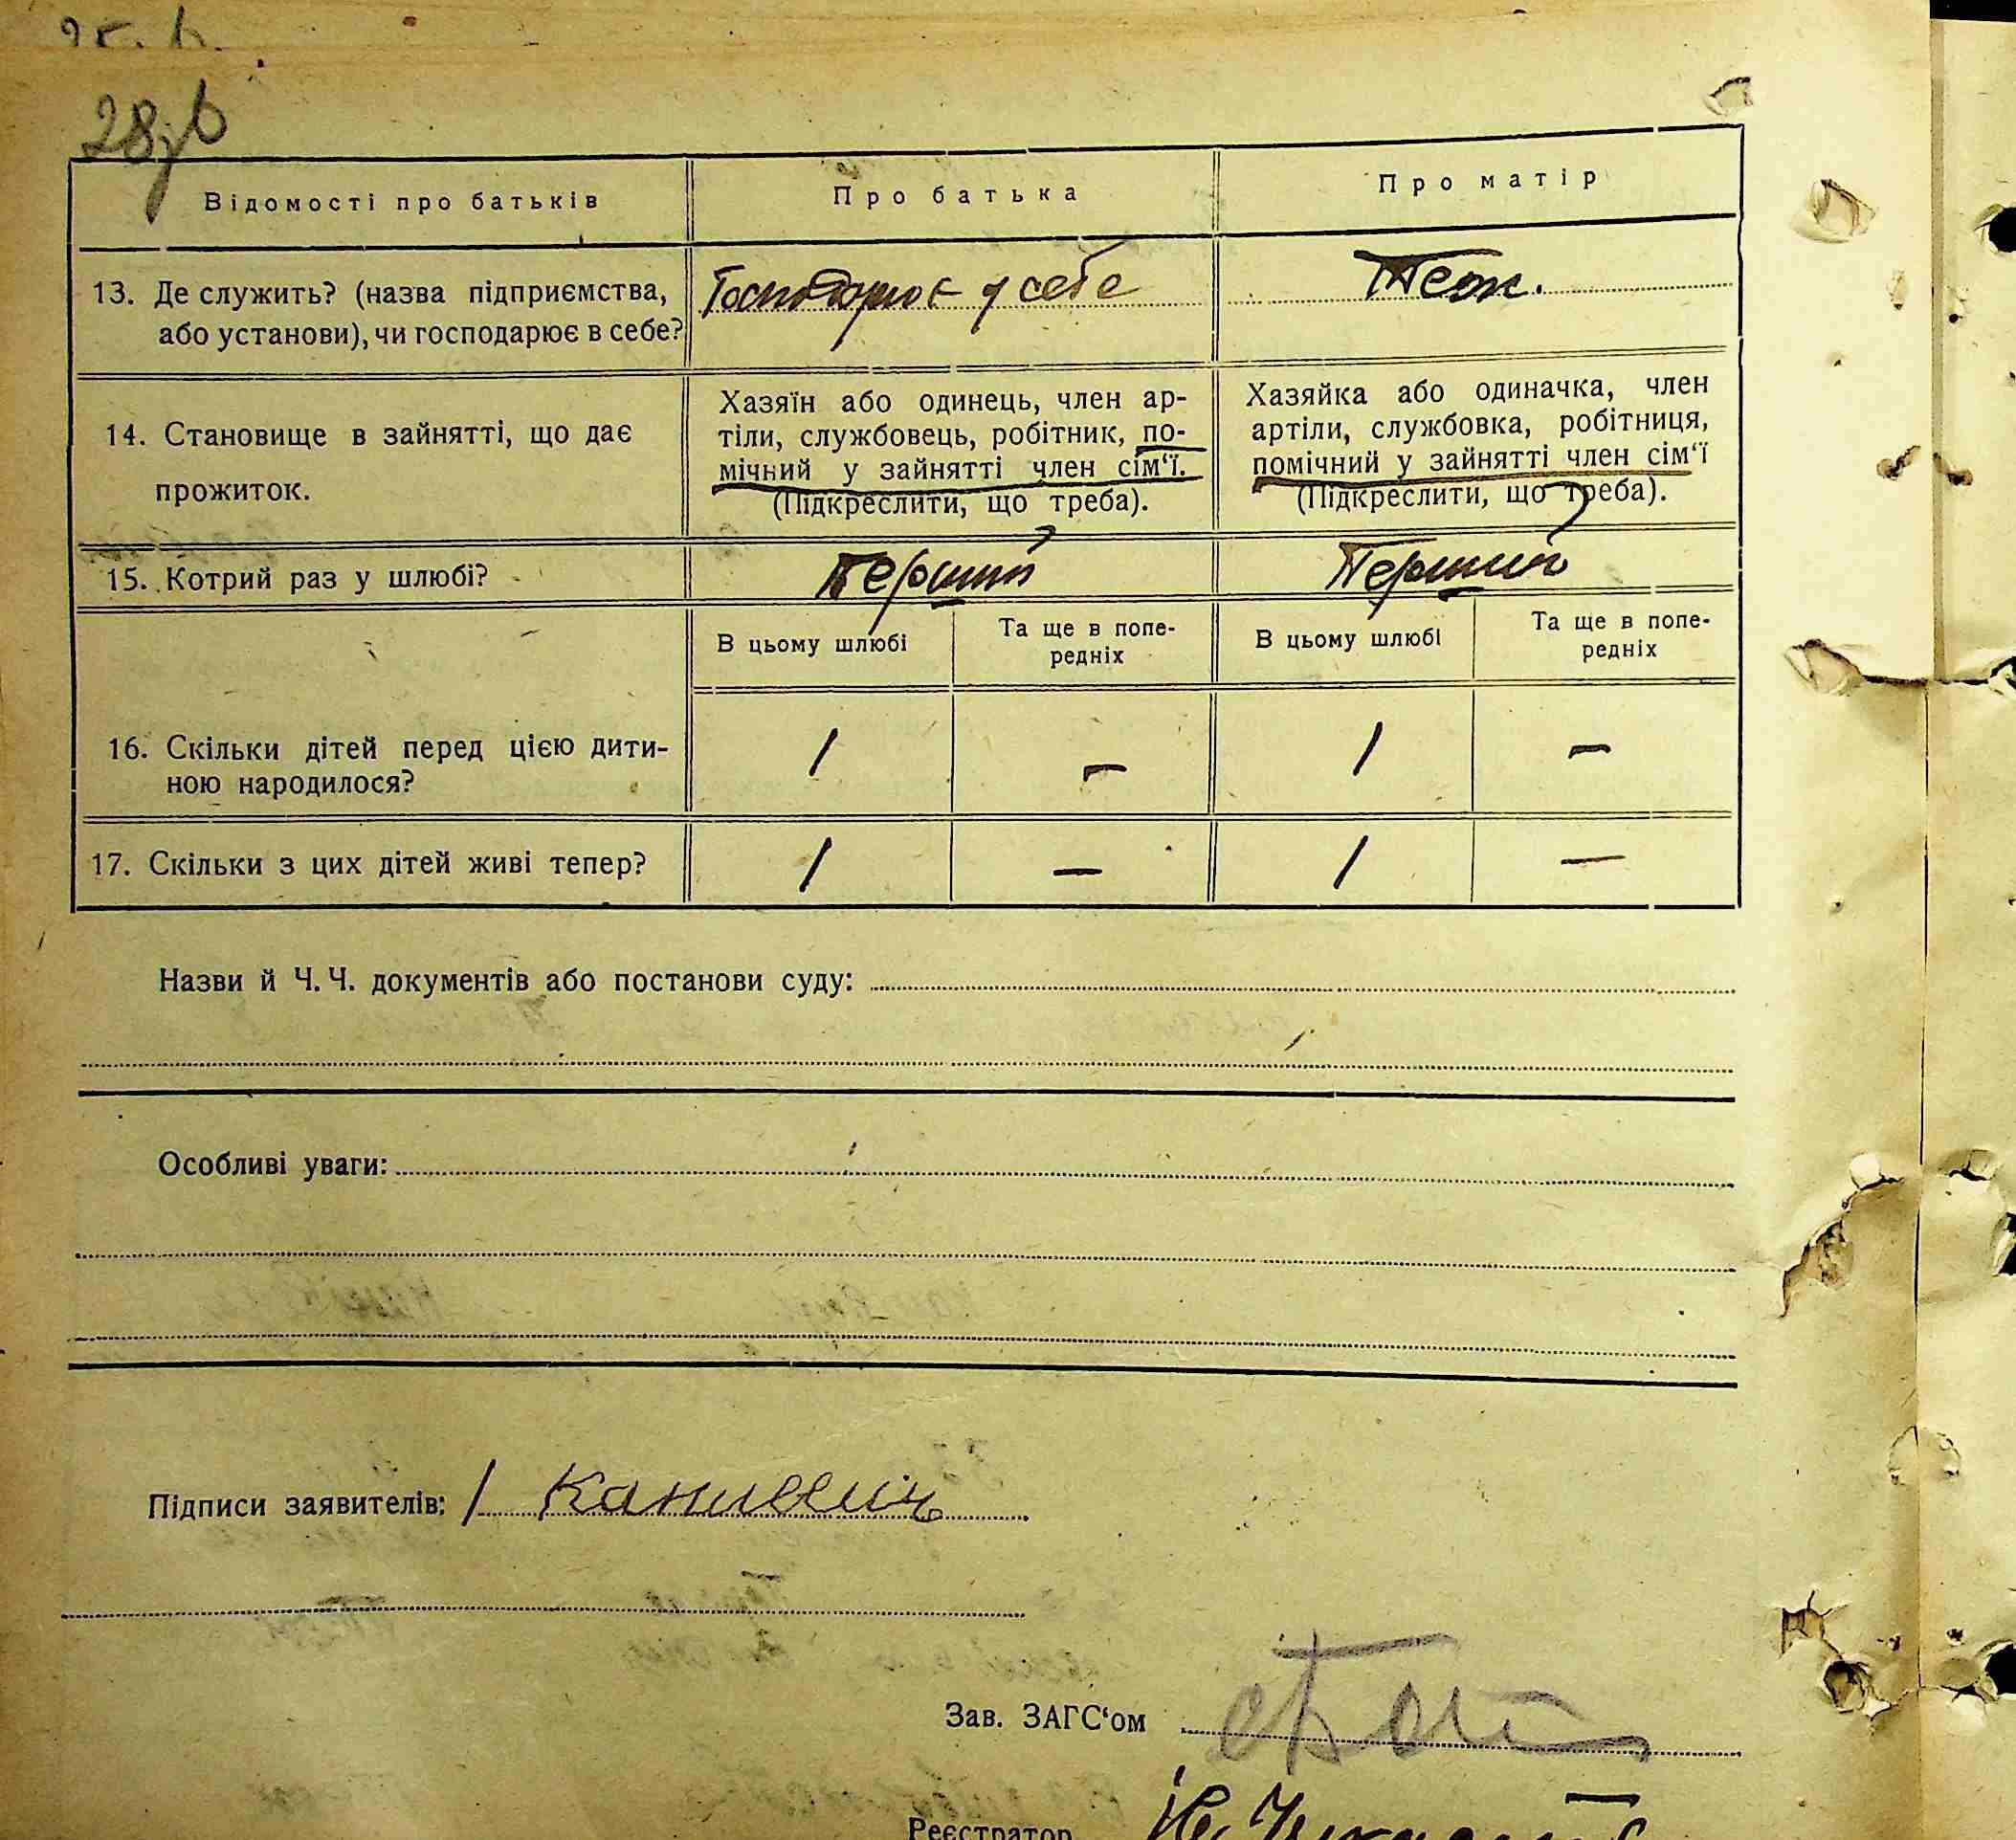 Відомості про батьків
Про батька
Про матір
13. Де служить? (назва підприємства,
або установи), чи господарює в себе?
Господарює у себе
Теж.
14. Становище в зайнятті, що дає
прожиток.
Хазяїн або одинець, член ар-
тіли, службовець, робітник, по-
мічний у зайнятті член сім‘ї.
(Підкреслити, що треба).
Хазяйка або одиначка, член
артіли, службовка, робітниця,
помічний у зайнятті член сім‘ї
(Підкреслити, що треба).
15. Котрий раз у шлюбі?
Перший
Перший
В цьому шлюбі
Та ще в попе-
редніх
В цьому шлюбі
Та ще в попе-
редніх
16. Скільки дітей перед цією дити-
ною народилося?
1 — 1 —
17. Скільки з цих дітей живі тепер?
1 — 1 —
Назви й Ч. Ч. документів або постанови суду:
Особливі уваги:
Підписи заявителів: /
Зав. ЗАГС‘ом
Реєстратор